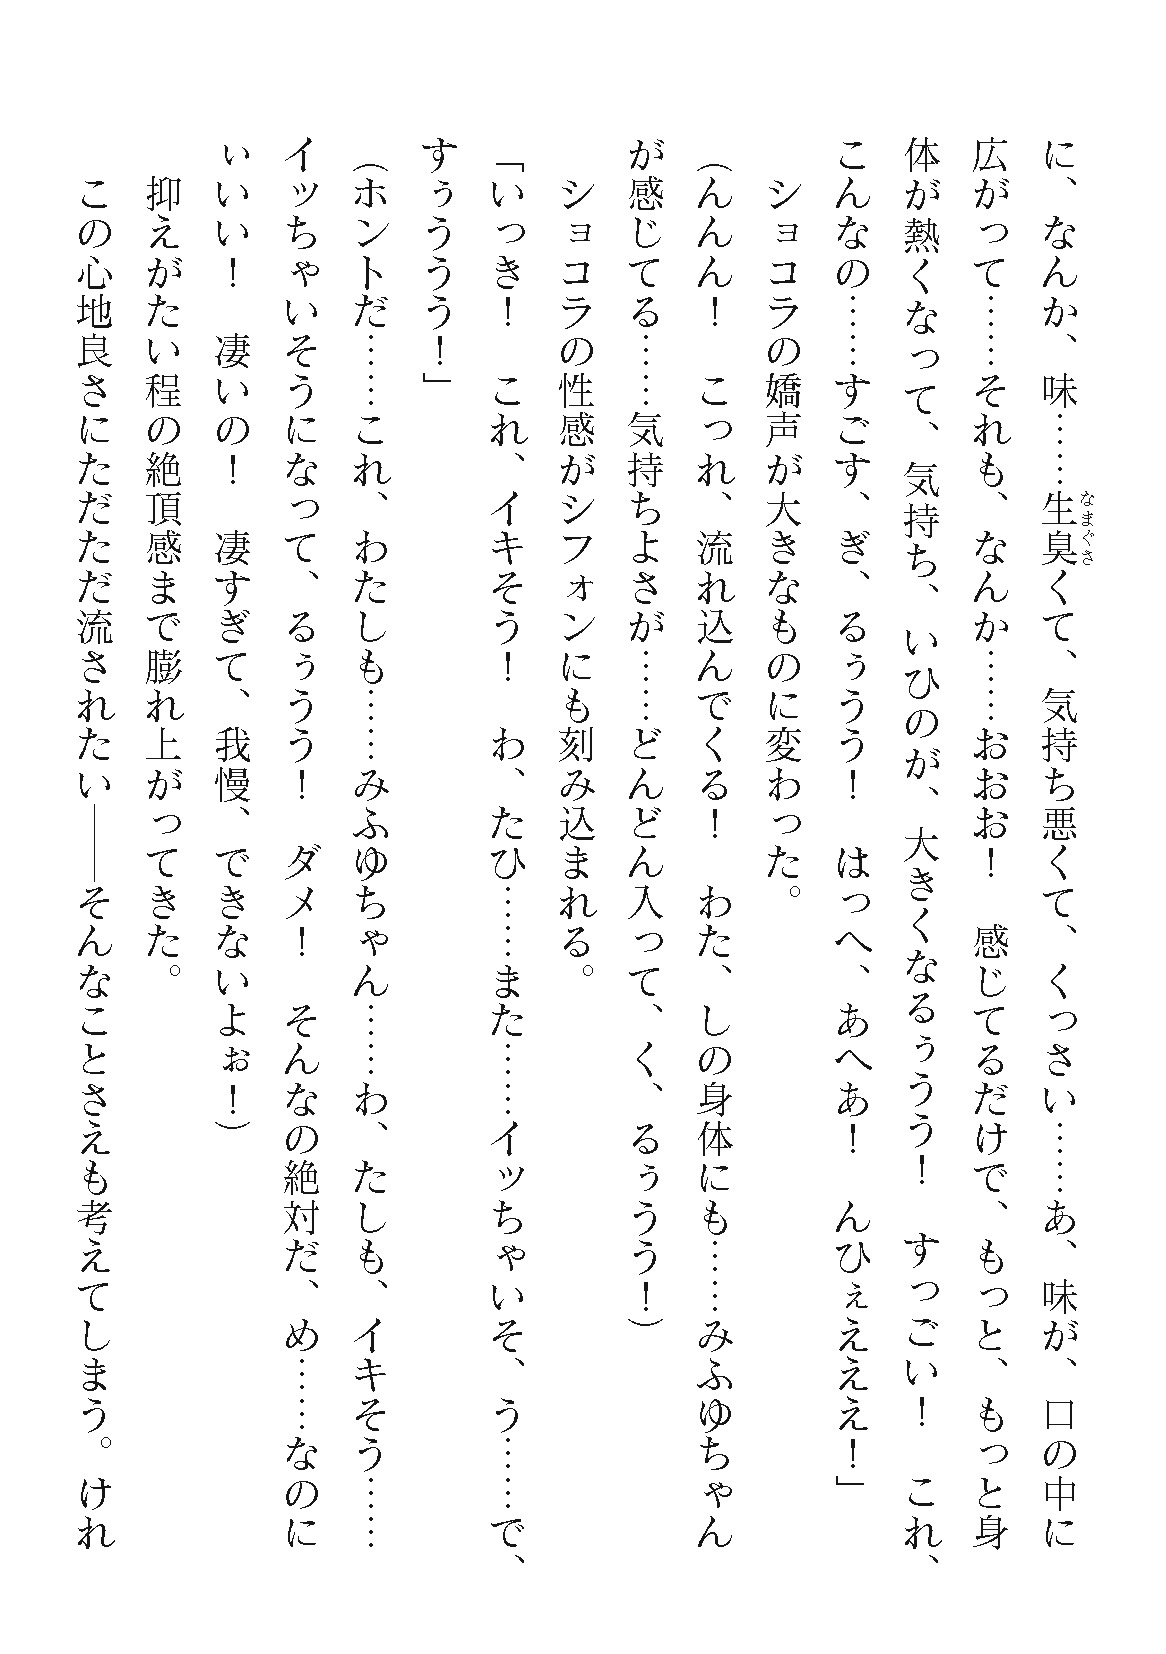 に、なんか、味……生臭くて、気持ち悪くて、くっさい……あ、味が、口の中に
なまぐさ
広がって……それも、なんか……おおお！　感じてるだけで、もっと、もっと身
体が熱くなって、気持ち、いひのが、大きくなるぅうう！　すっごい！　これ、
こんなの……すごす、ぎ、るぅうう！　はっへ、あへあ！　んひぇえええ！」
　ショコラの嬌声が大きなものに変わった。
（んんん！　こっれ、流れ込んでくる！　わた、しの身体にも……みふゆちゃん
が感じてる……気持ちよさが……どんどん入って、く、るぅうう！）
　ショコラの性感がシフォンにも刻み込まれる。
「いっき！　これ、イキそう！　わ、たひ……また……イッちゃいそ、う……で、
すぅううう！」
（ホントだ……これ、わたしも……みふゆちゃん……わ、たしも、イキそう……
イッちゃいそうになって、るぅうう！　ダメ！　そんなの絶対だ、め……なのに
ぃいい！　凄いの！　凄すぎて、我慢、できないよぉ！）
　抑えがたい程の絶頂感まで膨れ上がってきた。
　この心地良さにただただ流されたい――そんなことさえも考えてしまう。けれ